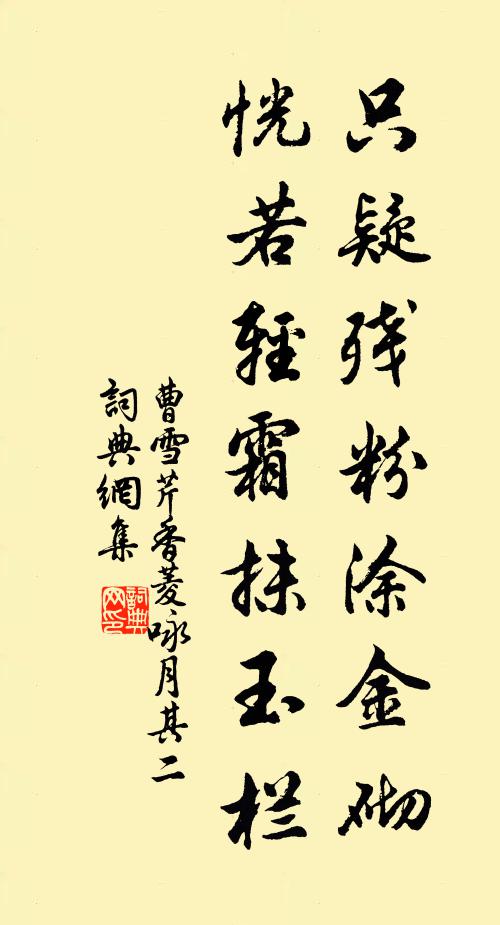 只疑残粉涂金砌
恍若轻霜抹玉栏
曹雪芹香菱咏月其二
詞典網集
詞典网印